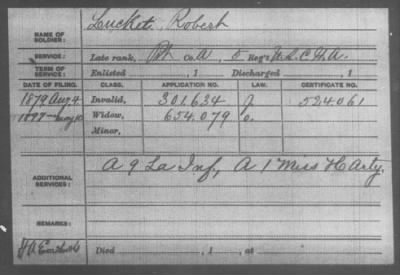 NAME OF SOLDIER: Lucket, Robert
SERVICE: Late rank, Pvt Co. A, 5 Reg't U.S.C.H.A.
TERM OF SERVICE: Enlisted , 1 Discharged , 1
DATE OF FILING. CLASS. APPLICATION NO. LAW. CERTIFICATE NO.
1879 Aug 4 Invalid, 301.634 524061
1897 Widow, 654.079
Minor,
ADDITIONAL SERVICES: A 9 La Inf, A 1 Miss H Arty.
REMARKS:
Died , 1 , at